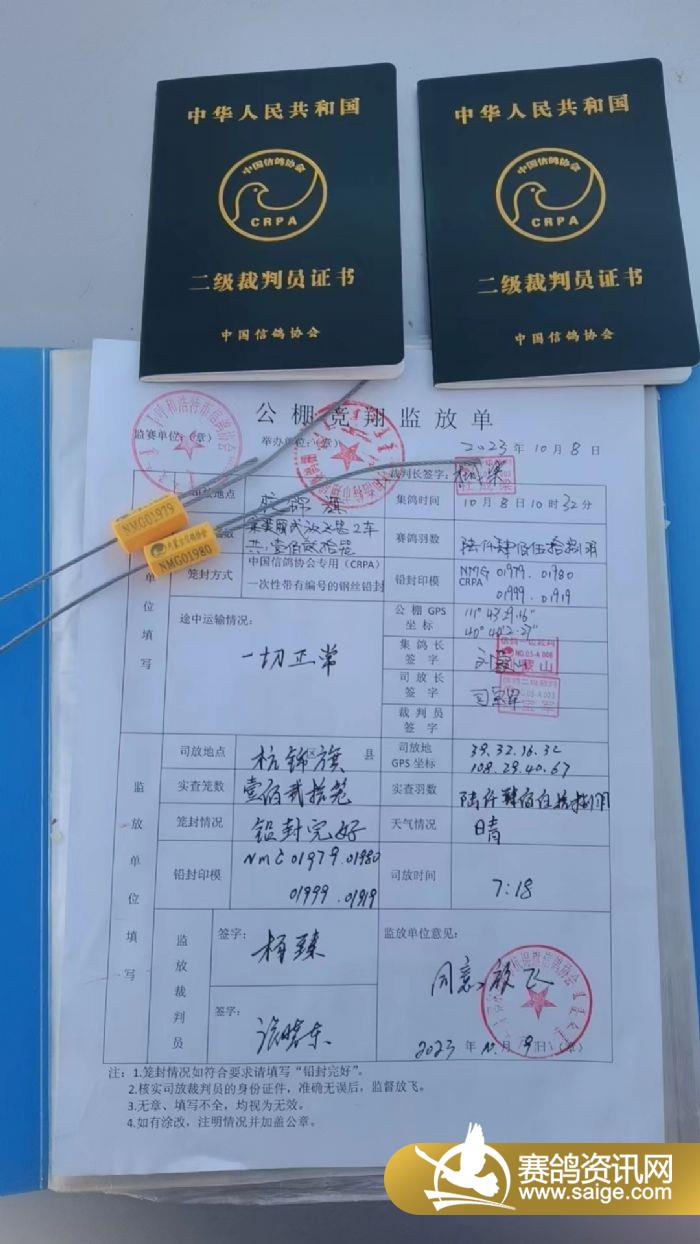 中华人民共和国
中国信鸽协会
CRPA
二级裁判员证书
中国信鸽协会
中华人民共和国
中国信鸽协会
CRPA
二级裁判员证书
中国信鸽协会
公棚竞翔监放单
监赛单位:（章）
举办单位:（章）
2023 年 10 月 8 日
裁判长签字:
NMG01979
内蒙古信鸽协会
NMG01980
地点
集鸽时间
10月8日10时32分
2车
共:壹佰贰拾笼
赛鸽羽数
笼封方式
中国信鸽协会专用（CRPA）
一次性带有编号的钢丝铅封
铅封印模
NMG 01979.01980
CRPA 01999.01919
单位填写
途中运输情况:
一切正常
公棚GPS
坐标
111° 43.29.16"
40° 40.2.27"
集鸽长
签字
司放长
签字
裁判员
签字
监放单位填写
司放地点
杭锦旗
区
县
司放地
GPS坐标
39.32.16.32
108.29.40.67
实查笼数
壹佰贰拾笼
实查羽数
笼封情况
铅封完好
天气情况
晴
铅封印模
NMG01979.01980
01999.01919
司放时间
7:18
监放裁判员
签字:
杨臻
签字:
监放单位意见:
同意放飞
2023 年 10 月 9 日（章）
注：1.笼封情况如符合要求请填写“铅封完好”。
2.核实司放裁判员的身份证件，准确无误后，监督放飞。
3.无章、填写不全，均视为无效。
4.如有涂改，注明情况并加盖公章。
赛鸽资讯网
www.saige.com